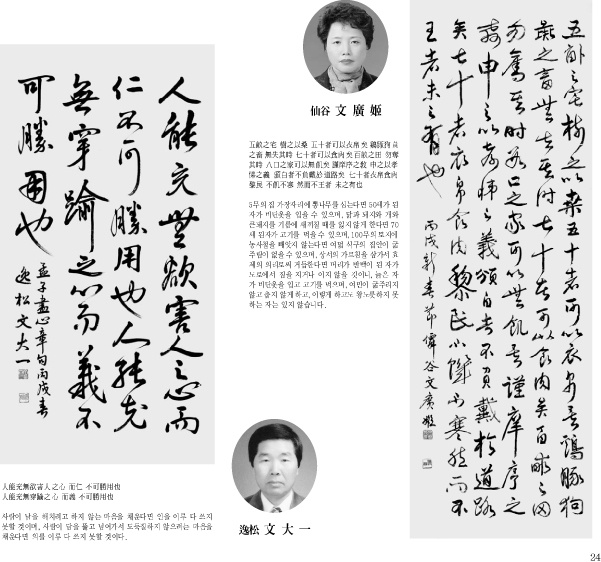 人能充無欲害人之心而
仁不可勝用也人能充
無穿踰之心而義不
可勝用也
孟子盡心章句丙戌春
逸松文大一
人能充無欲害人之心 而仁 不可勝用也
人能充無穿踰之心 而義 不可勝用也
사람이 남을 해치려고 하지 않는 마음을 채운다면 인을 이루 다 쓰지
못할 것이며, 사람이 담을 뚫고 넘어가서 도둑질하지 않으려는 마음을
채운다면 의를 이루 다 쓰지 못할 것이다.
仙谷 文 廣 姬
五畝之宅 樹之以桑 五十者可以衣帛矣 鷄豚狗彘
之畜 無失其時 七十者可以食肉矣 百畝之田 勿奪
其時 八口之家可以無飢矣 謹庠序之敎 申之以孝
悌之義 頒白者不負戴於道路矣 七十者衣帛食肉
黎民 不飢不寒 然而不王者 未之有也
5무의 집 가장자리에 뽕나무를 심는다면 50세가 된
자가 비단옷을 입을 수 있으며, 닭과 돼지와 개와
큰돼지를 기름에 새끼칠 때를 잃지않게 한다면 70
세 된자가 고기를 먹을 수 있으며, 100무의 토지에
농사철을 빼앗지 않는다면 여덟 식구의 집안이 굶
주림이 없을 수 있으며, 상서의 가르침을 삼가서 효
제의 의리로써 거듭한다면 머리가 반백이 된 자가
도로에서 짐을 지거나 이지 않을 것이니, 늙은 자
가 비단옷을 입고 고기를 먹으며, 여민이 굶주리지
않고 춥지 않게 하고, 이렇게 하고도 왕노릇하지 못
하는 자는 있지 않습니다.
逸松 文 大 一
五畝之宅樹之以桑五十者可以衣帛矣鷄豚狗
彘之畜無失其時七十者可以食肉矣百畝之田
勿奪其時数口之家可以無飢矣謹庠序之
教申之以孝悌之義頒白者不負戴於道路
矣七十者衣帛食肉黎民不饑不寒然而不
王者未之有也
丙戌新春節僊谷文廣姬
24